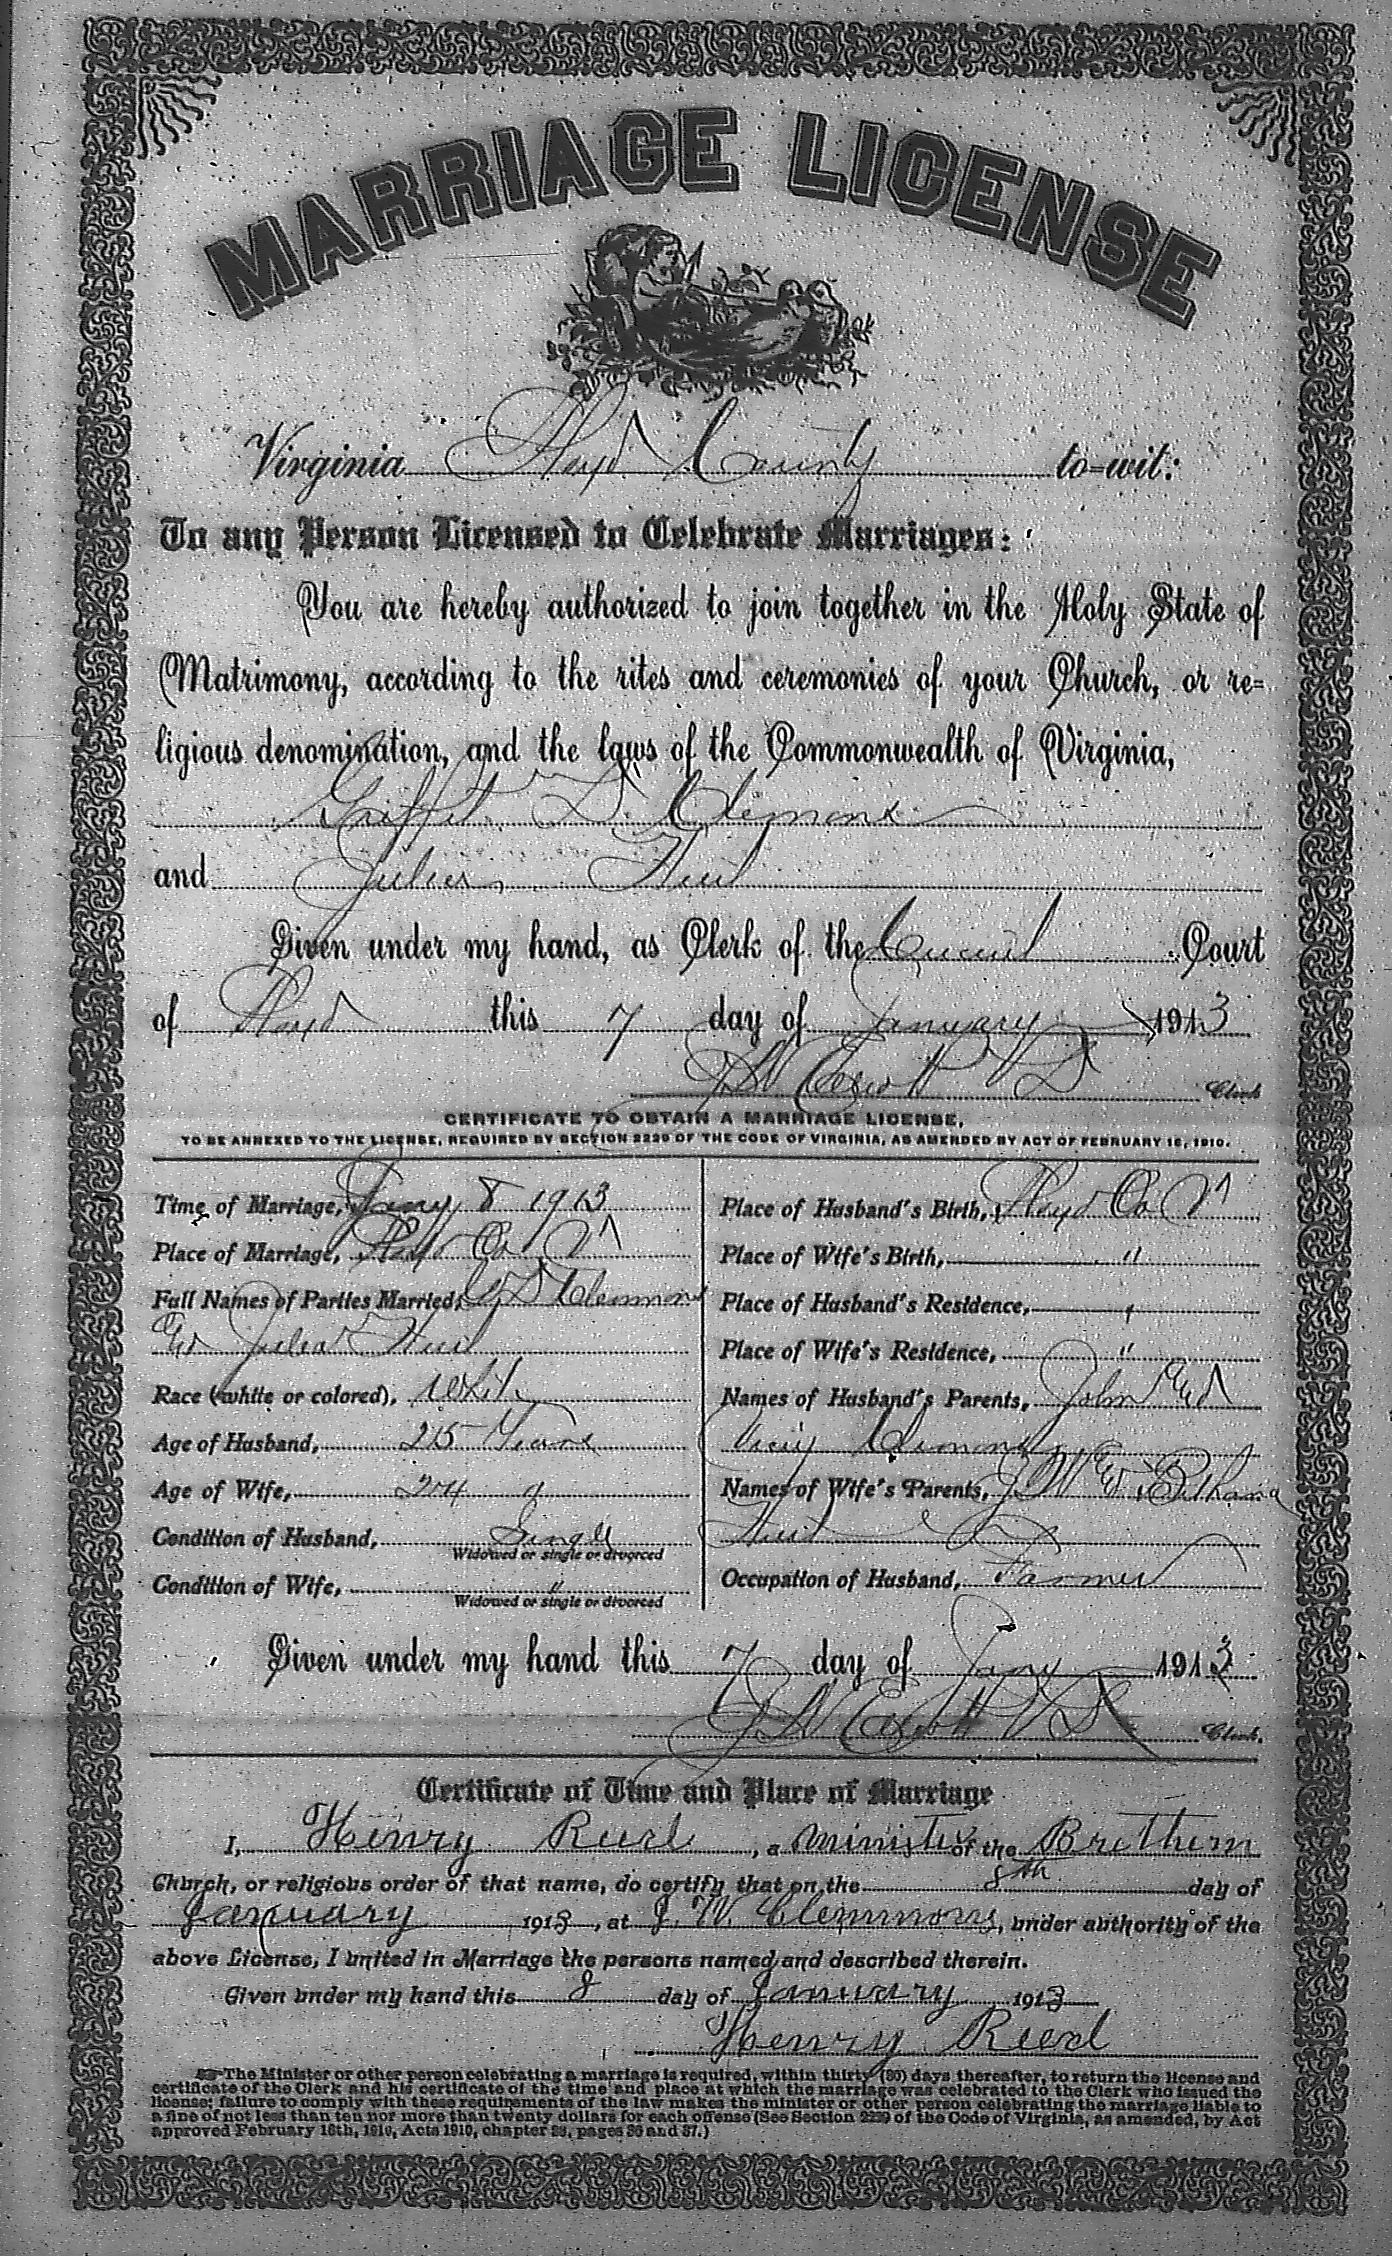 MARRIAGE LICENSE
Virginia Floyd County to=wit:
To any Person Licensed to Celebrate Marriages:
You are hereby authorized to join together in the Holy State of
Matrimony, according to the rites and ceremonies of your Church, or re=
ligious denomination, and the laws of the Commonwealth of Virginia,
D. Clemons
and Julia
Given under my hand, as Clerk of the Circuit Court
of Floyd this 7 day of January 1913
Clerk
CERTIFICATE TO OBTAIN A MARRIAGE LICENSE,
TO BE ANNEXED TO THE LICENSE, REQUIRED BY SECTION 2229 OF THE CODE OF VIRGINIA, AS AMENDED BY ACT OF FEBRUARY 16, 1910.
Time of Marriage, Jany 8 1913
Place of Marriage, Floyd Co Va
Full Names of Parties Married, G D Clemmons
and Julia
Race (white or colored), White
Age of Husband, 25 Years
Age of Wife, 24 "
Condition of Husband, Single
Widowed or single or divorced
Condition of Wife, "
Widowed or single or divorced
Place of Husband's Birth, Floyd Co Va
Place of Wife's Birth, "
Place of Husband's Residence, "
Place of Wife's Residence, "
Names of Husband's Parents, John and
Names of Wife's Parents, J W and Bethana
Occupation of Husband, Farmer
Given under my hand this 7 day of Jany 1913
Clerk.
Certificate of Time and Place of Marriage
I, Henry Reed, a minister of the Brethern
Church, or religious order of that name, do certify that on the 8th day of
January 1913, at J. W. Clemmons, under authority of the
above License, I united in Marriage the persons named and described therein.
Given under my hand this 8 day of January 1913
Henry Reed
The Minister or other person celebrating a marriage is required, within thirty (30) days thereafter, to return the license and
certificate of the Clerk and his certificate of the time and place at which the marriage was celebrated to the Clerk who issued the
license; failure to comply with these requirements of the law makes the minister or other person celebrating the marriage liable to
a fine of not less than ten nor more than twenty dollars for each offense (See Section 2229 of the Code of Virginia, as amended, by Act
approved February 16th, 1910, Acts 1910, chapter 28, pages 36 and 37.)